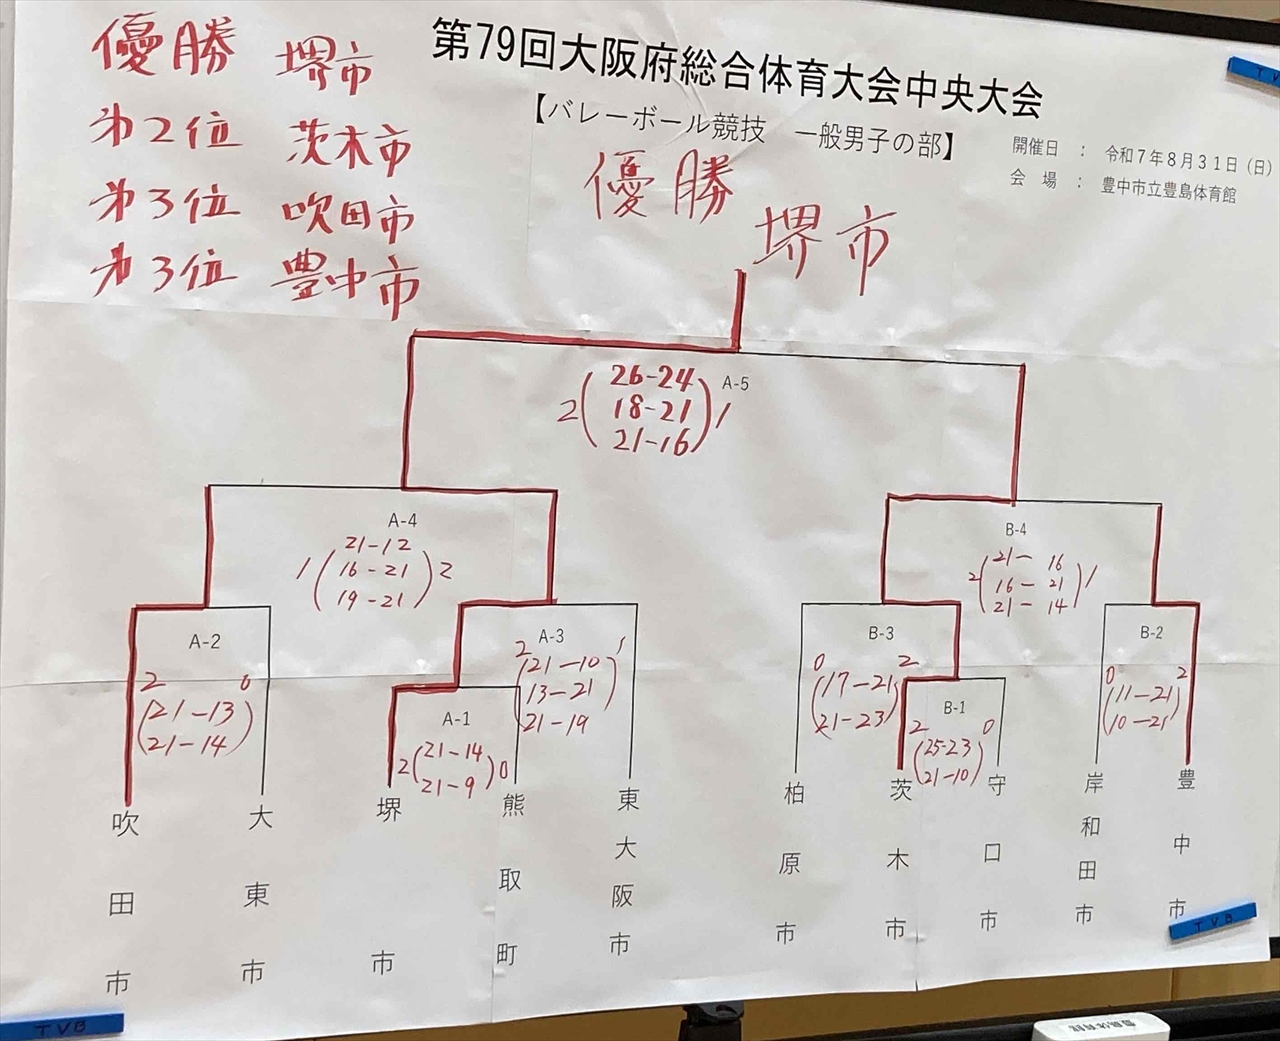 第79回大阪府総合体育大会中央大会
【バレーボール競技　一般男子の部】
開催日　：　令和７年８月３１日（日）
会　場　：　豊中市立豊島体育館
優勝　堺市
第２位　茨木市
第３位　吹田市
第３位　豊中市
優勝
堺市
A-5
2 ( 26-24
18-21
21-16 ) 1
A-4
1 ( 21-12
16-21
19-21 ) 2
B-4
2 ( 21-16
16-21
21-14 ) 1
A-2
2　0
( 21-13
21-14 )
A-3
2　1
( 21-10
13-21
21-19 )
B-3
0　2
( 17-21
21-23 )
B-2
0　2
( 11-21
10-21 )
A-1
2 ( 21-14
21-9 ) 0
B-1
2　0
( 25-23
21-10 )
吹田市
大東市
堺市
熊取町
東大阪市
柏原市
茨木市
守口市
岸和田市
豊中市
TVB
TVB